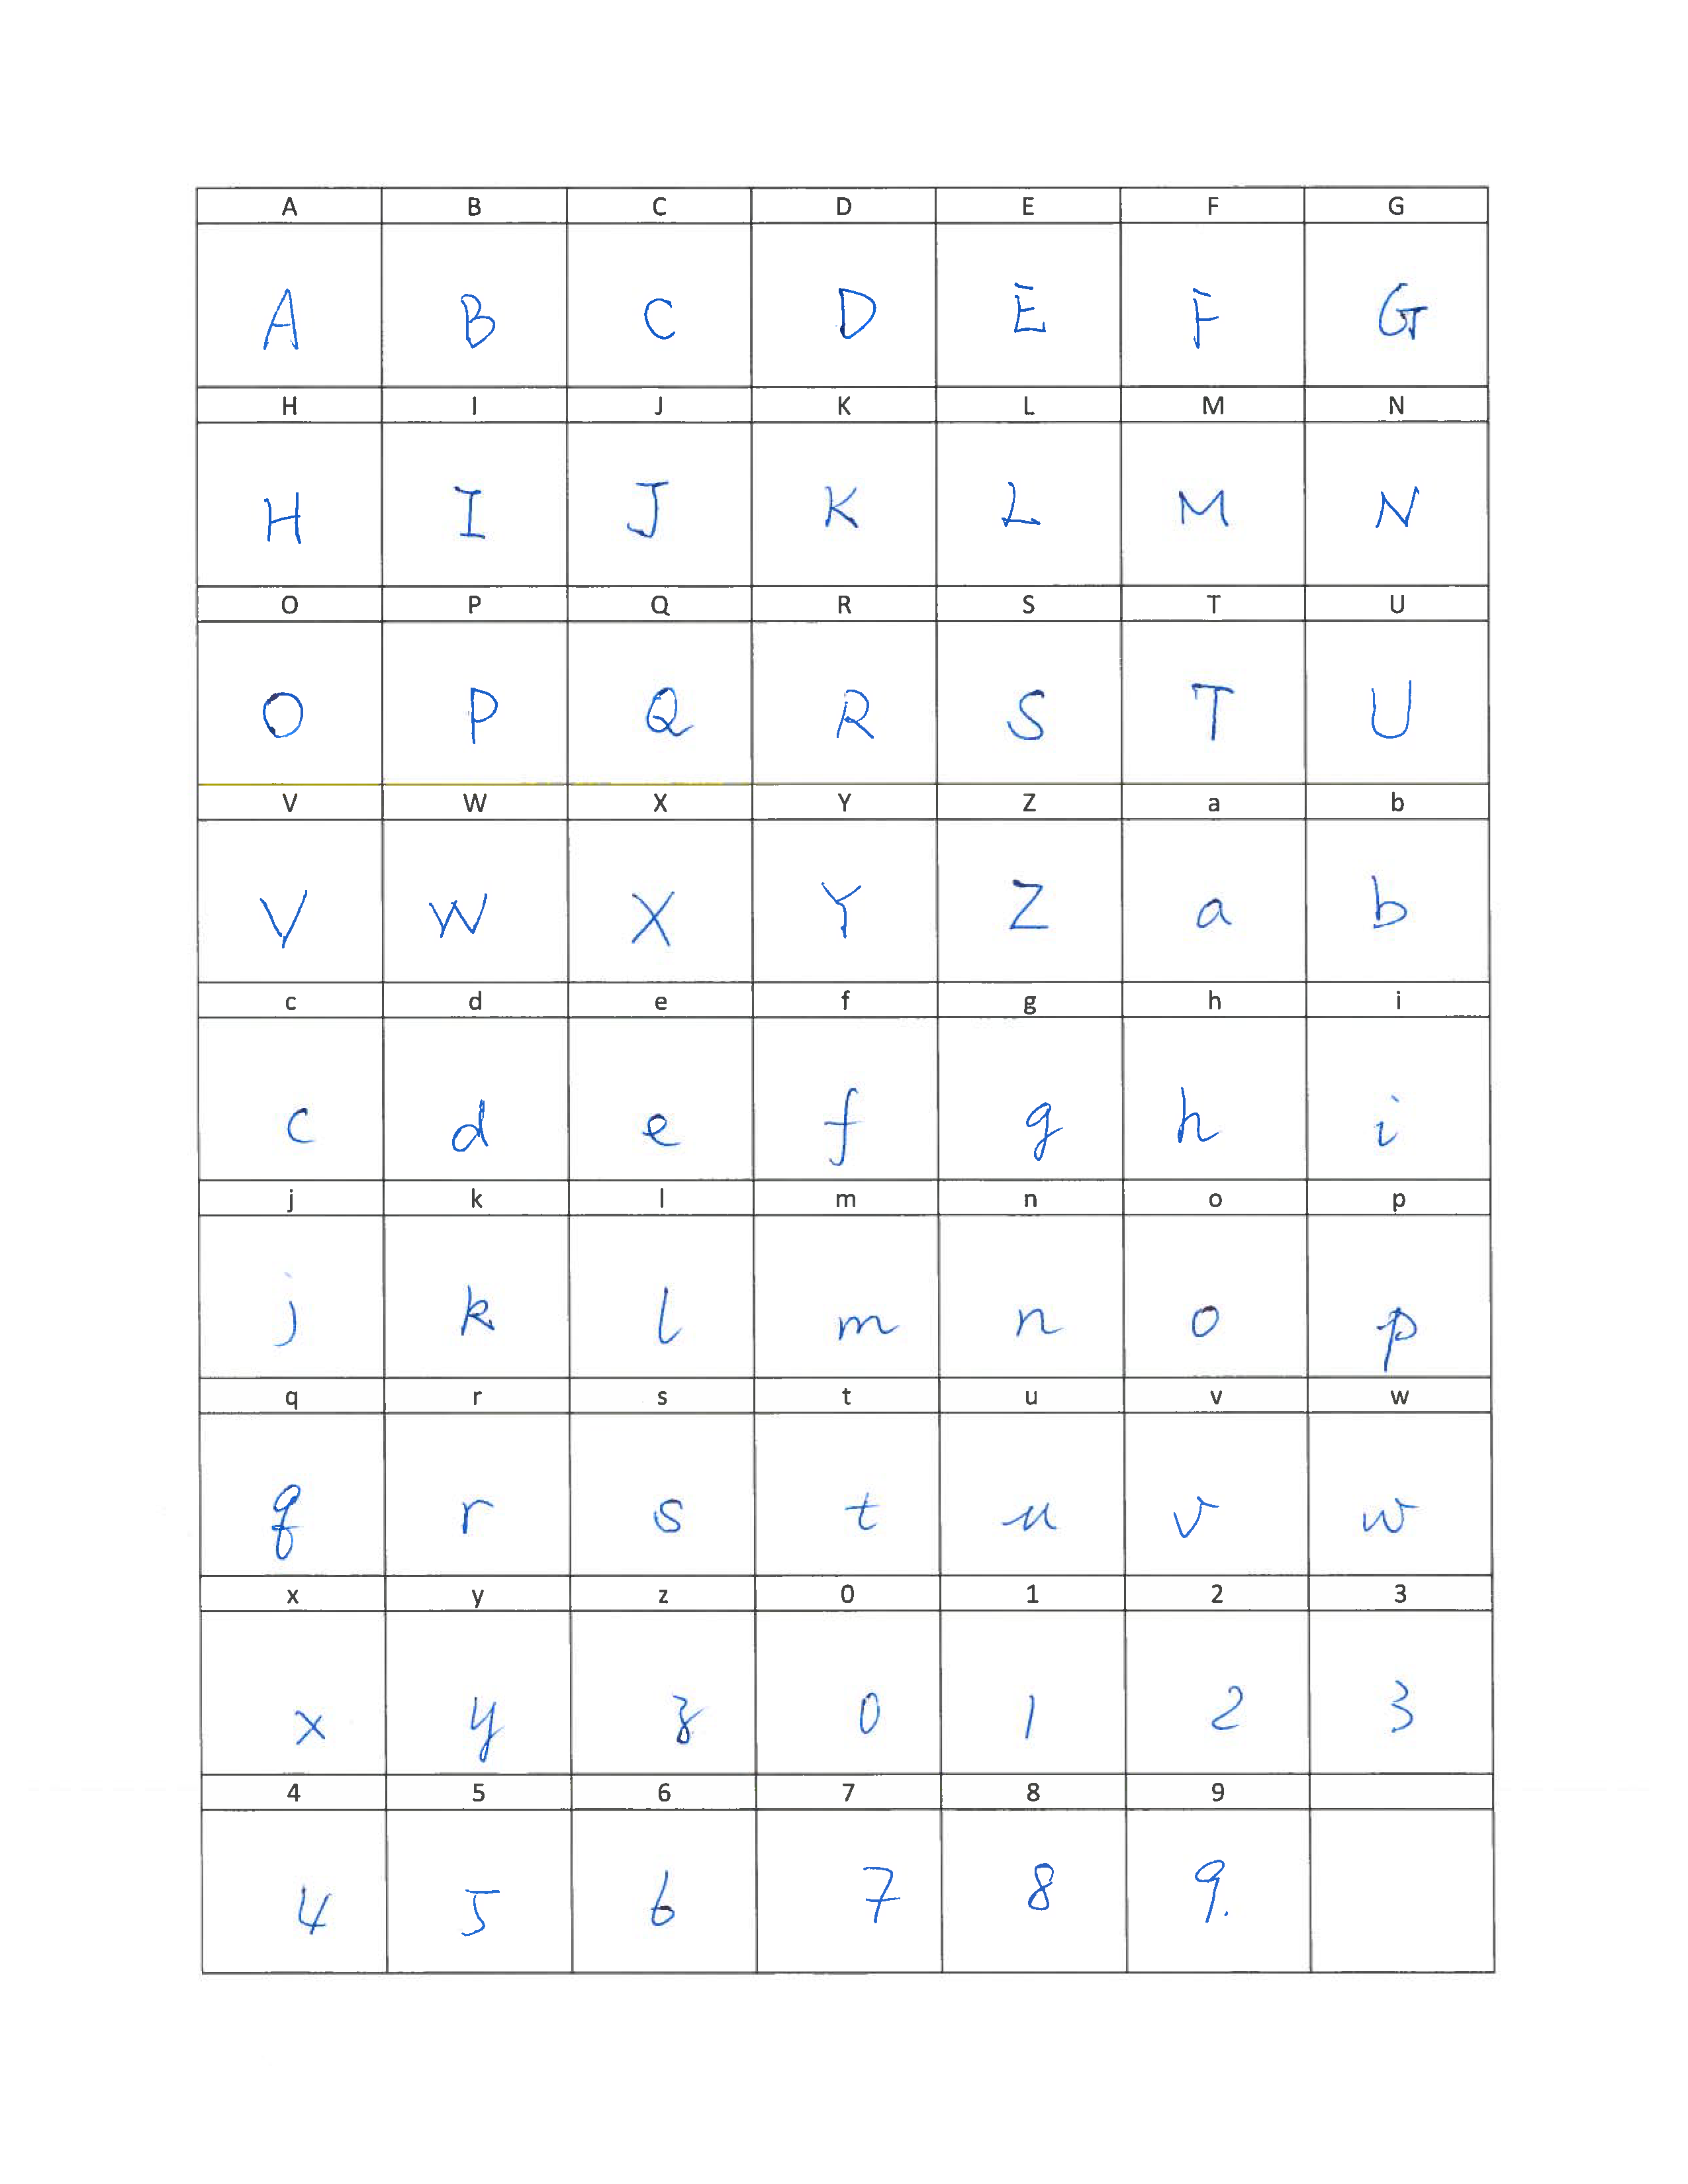 A B C D E F G
A B C D E F G
H I J K L M N
H I J K L M N
O P Q R S T U
O P Q R S T U
V W X Y Z a b
V W X Y Z a b
c d e f g h i
c d e f g h i
j k l m n o p
j k l m n o p
q r s t u v w
q r s t u v w
x y z 0 1 2 3
x y z 0 1 2 3
4 5 6 7 8 9
4 5 6 7 8 9.